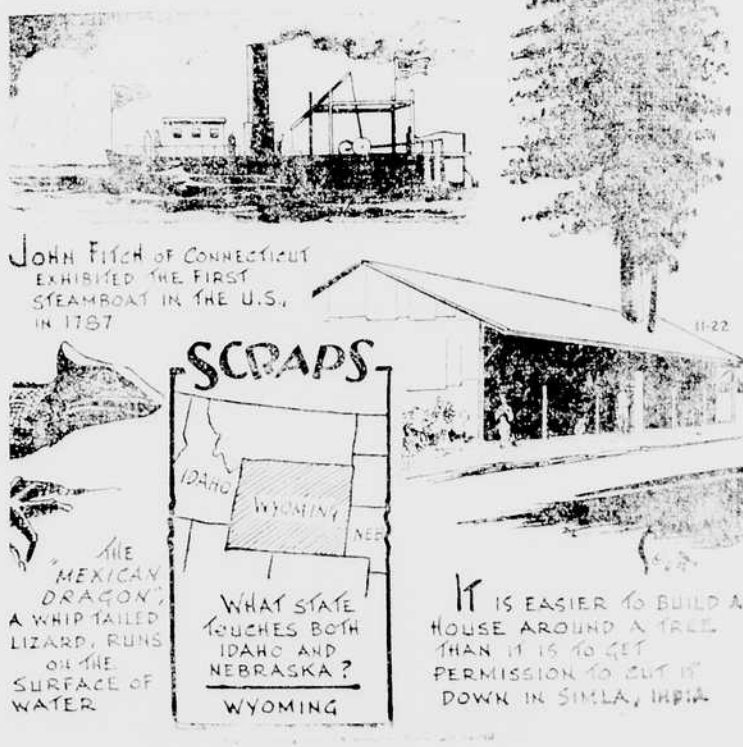 JOHN FITCH OF CONNECTICUT
EXHIBITED THE FIRST
STEAMBOAT IN THE U.S.,
IN 1787
11-22
SCRAPS
IDAHO
WYOMING
NEB
WHAT STATE
TOUCHES BOTH
IDAHO AND
NEBRASKA?
WYOMING
THE
"MEXICAN
DRAGON",
A WHIP TAILED
LIZARD, RUNS
ON THE
SURFACE OF
WATER
IT IS EASIER TO BUILD A
HOUSE AROUND A TREE
THAN IT IS TO GET
PERMISSION TO CUT IT
DOWN IN SIMLA, INDIA